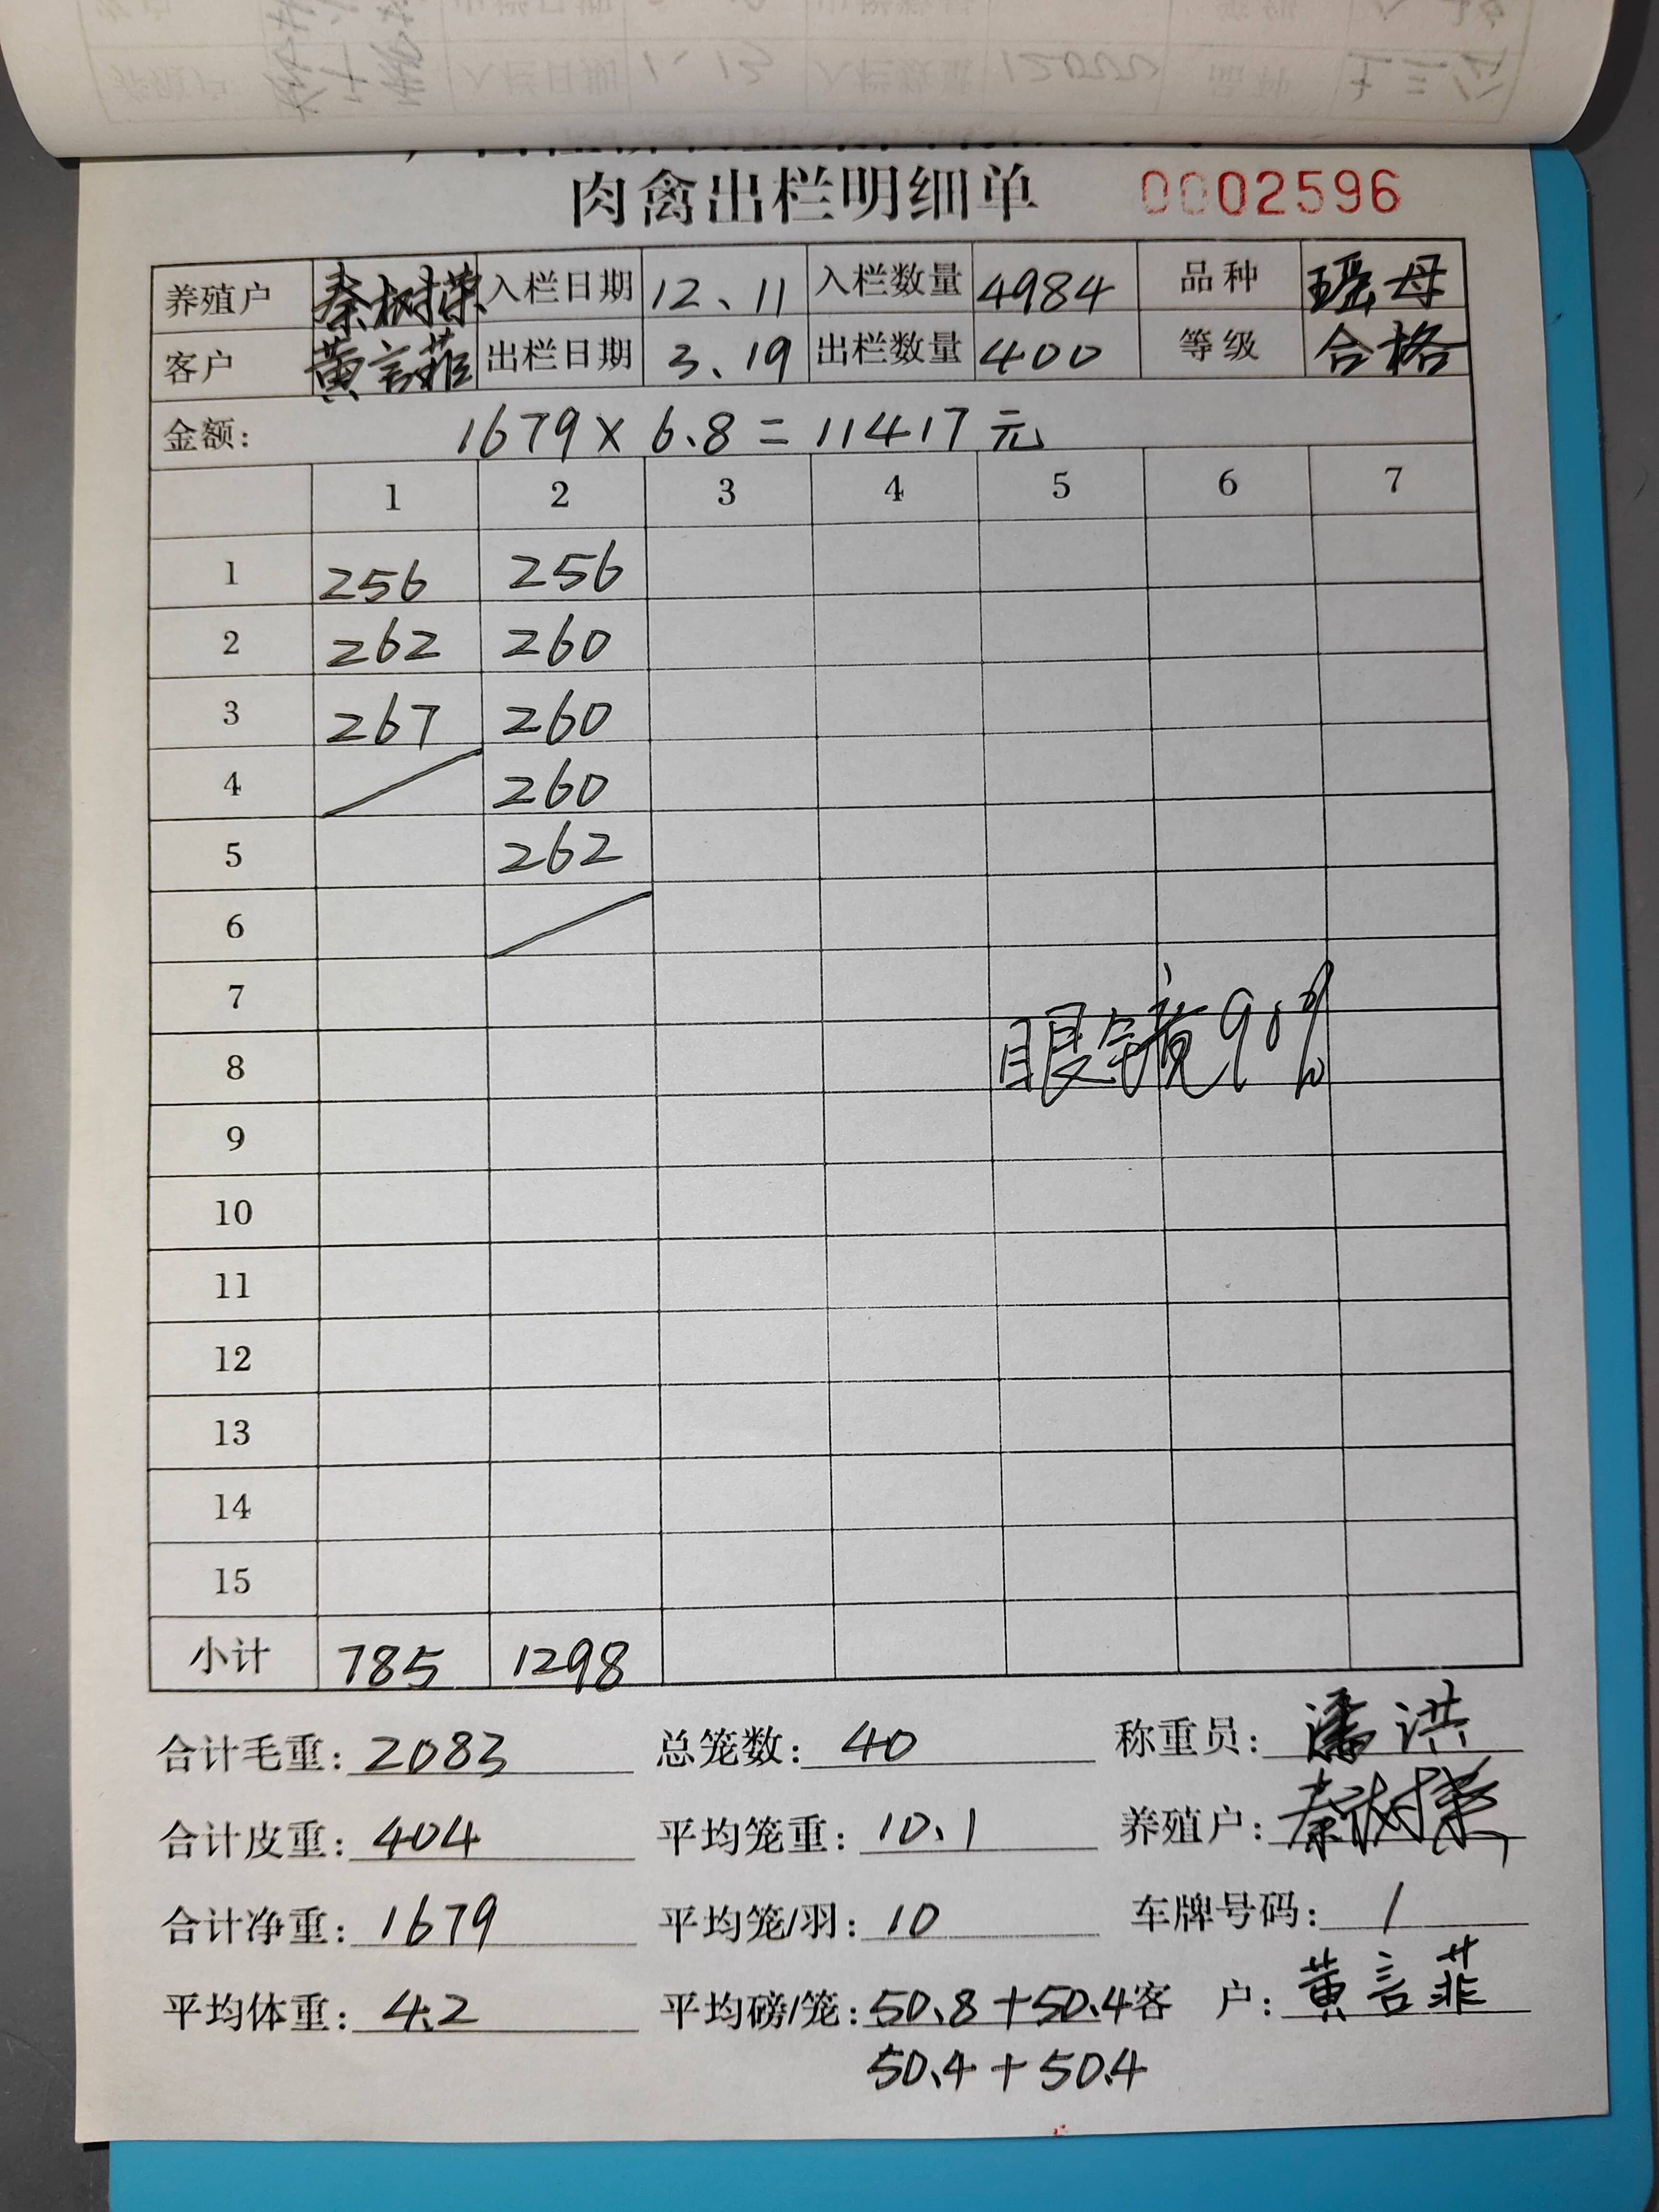 肉禽出栏明细单 0002596
养殖户 秦树荣 入栏日期 12、11 入栏数量 4984 品种 瑶母
客户 黄言菲 出栏日期 3、19 出栏数量 400 等级 合格
金额: 1679×6.8=11417元
1 2 3 4 5 6 7
1 256 256
2 262 260
3 267 260
4 260
5 262
6
7
8 眼镜90%
9
10
11
12
13
14
15
小计 785 1298
合计毛重: 2083 总笼数: 40 称重员: 潘洪
合计皮重: 404 平均笼重: 10、1 养殖户: 秦树荣
合计净重: 1679 平均笼/羽: 10 车牌号码: /
平均体重: 4.2 平均磅/笼: 50.8+50.4 客 户: 黄言菲
50.4+50.4